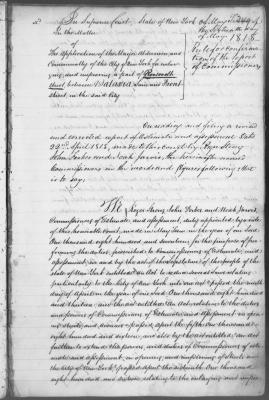 In Supreme Court, State of New York
In the Matter
of
The Application of the Mayor Aldermen and
Commonalty of the City of New York for enlar-
ging and improving a part of
Street between and Front
Street in the said City
May 1818.
Rule for confirma-
tion of the report
of Commissioners
On reading and filing a revised
and corrected report of Estimate and assessment dated
22nd April 1818, made to this Court by
John and Noah Jarvis, the
Commissioners in the words and figures following that
is to say,
We Roger Strong John and Noah Jarvis
Commissioners of Estimate and assessment, duly appointed by
of this honorable Court, made in May Term in the year of our Lord
One thousand eight hundred and seventeen, for the purpose of per-
forming the duties, prescribed to Commissioners of Estimate and
assessment, in and by the act of the Legislature of the people of the
state of New York entitled "an Act to reduce several laws relating
particularly to the City of New York into one act" passed the ninth
day of April in the year of our Lord One thousand eight hundred
and thirteen; and the act entitled "An Act relative to the duties
and powers of Commissioners of Estimate and assessment in open-
ing streets, and passed
eight hundred and sixteen, and also by the act entitled "an act
further to extend the powers, and duties of Commissioners of esti-
mate and assessment, in opening, and improving of Streets in
the City of New York" passed April the One thousand
eight hundred and sixteen relating to the enlarging and impro-